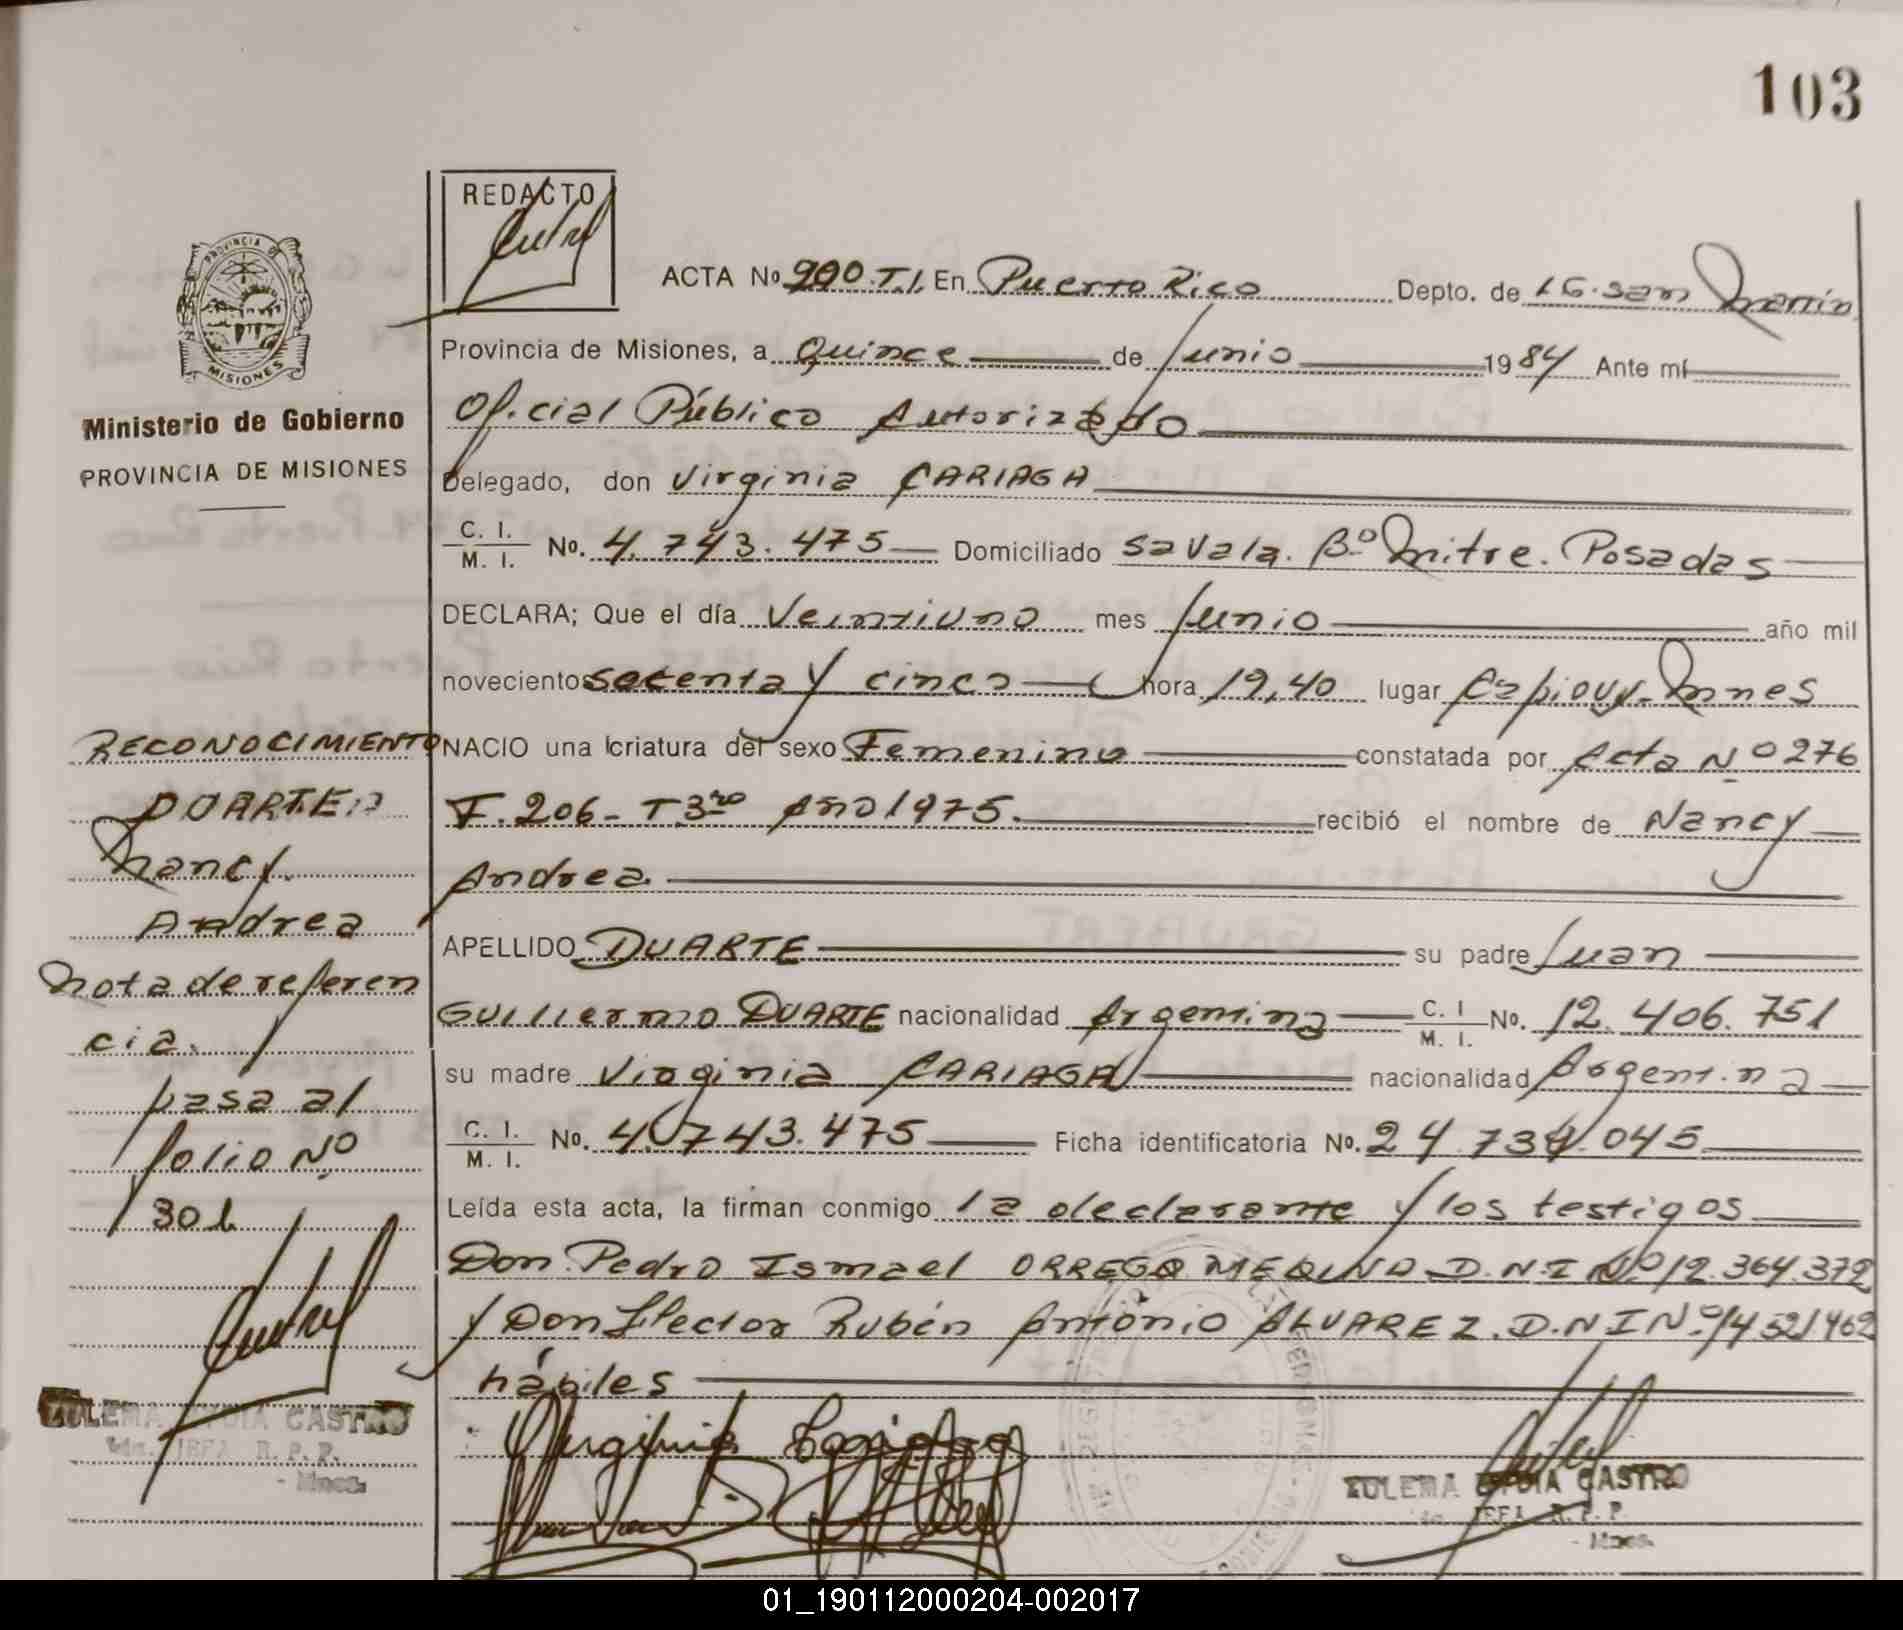 103
REDACTO
ACTA No 200.T.I. En Puerto Rico Depto. de LG. San Martín
Provincia de Misiones, a Quince de Junio 1984 Ante mí
Oficial Público Autorizado
Delegado, don Virginia CARIAGA
C. I. / M. I. No. 4.743.475 Domiciliado Savala. Bº Mitre. Posadas
DECLARA; Que el día Veintiuno mes Junio año mil
novecientos setenta y cinco hora 19,40 lugar Capiovy-Mnes
NACIO una criatura del sexo Femenino constatada por Acta Nº 276
F. 206 - T 3ro Año 1975. recibió el nombre de Nancy
Andrea
APELLIDO DUARTE su padre Juan
Guillermo DUARTE nacionalidad Argentina C. I / M. I. No. 12.406.751
su madre Virginia CARIAGA nacionalidad Argentina
C. I. / M. I. No. 4.743.475 Ficha identificatoria No. 24.734.045
Leída esta acta, la firman conmigo la declarante y los testigos
Don Pedro Ismael ORREGO MEQUNO D.N.I Nº 12.364.372
y Don Hector Rubén Antonio ALVAREZ. D.N I Nº 14521462
hábiles
Virginia Cariaga
ZULEMA LYDIA CASTRO
JEFA R. P. P.
- Mnes.
PROVINCIA DE
MISIONES
Ministerio de Gobierno
PROVINCIA DE MISIONES
RECONOCIMIENTO
DUARTE
Nancy
Andrea
Nota de referen
cia.
pasa al
folio Nº
301
ZULEMA LYDIA CASTRO
JEFA R. P. P.
- Mnes.
01_190112000204-002017